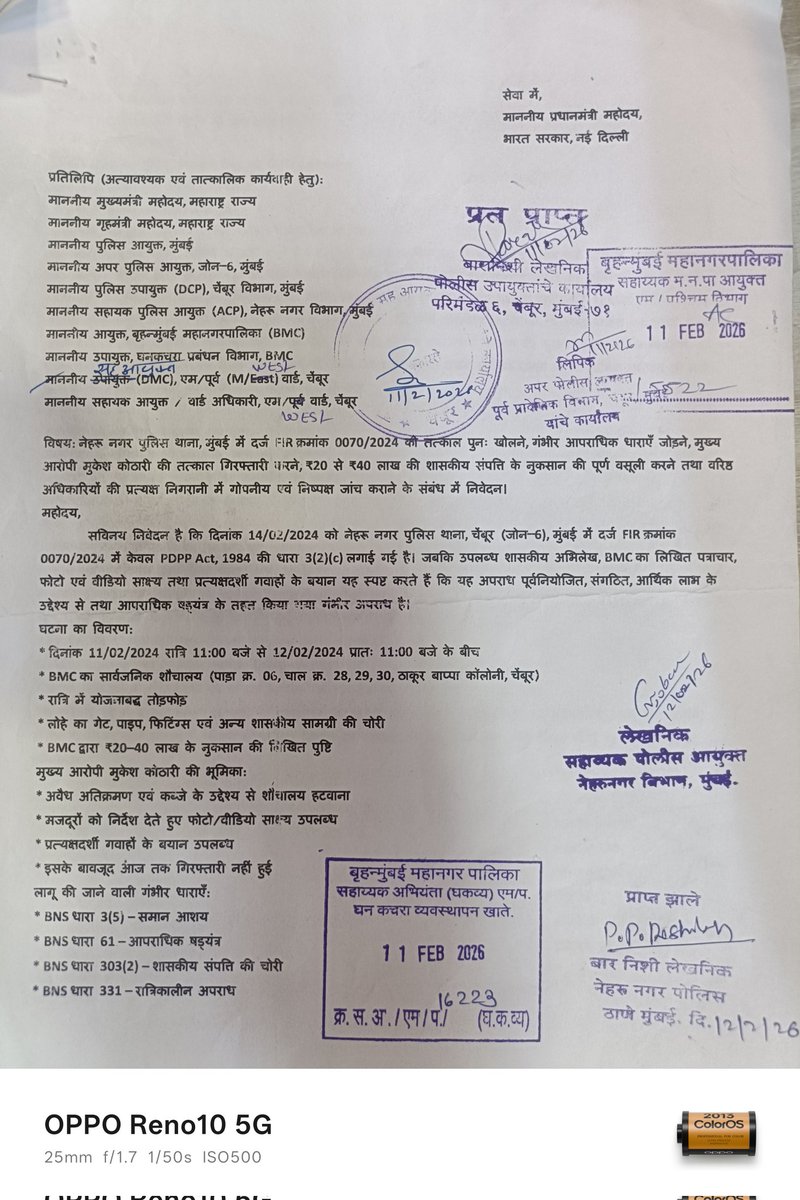 सेवा में,
माननीय प्रधानमंत्री महोदय,
भारत सरकार, नई दिल्ली
प्रतिलिपि (अत्यावश्यक एवं तात्कालिक कार्यवाही हेतु):
माननीय मुख्यमंत्री महोदय, महाराष्ट्र राज्य
माननीय गृहमंत्री महोदय, महाराष्ट्र राज्य
माननीय पुलिस आयुक्त, मुंबई
माननीय अपर पुलिस आयुक्त, जोन-6, मुंबई
माननीय पुलिस उपायुक्त (DCP), चेंबूर विभाग, मुंबई
माननीय सहायक पुलिस आयुक्त (ACP), नेहरू नगर विभाग, मुंबई
माननीय आयुक्त, बृहन्मुंबई महानगरपालिका (BMC)
माननीय उपायुक्त, घनकचरा प्रबंधन विभाग, BMC
माननीय उपायुक्त (DMC), एम/पूर्व (M/East) वार्ड, चेंबूर
WEST
माननीय सहायक आयुक्त / वार्ड अधिकारी, एम/पूर्व वार्ड, चेंबूर
WEST
प्रत प्राप्त
11/02/26
बारनिशी लेखनिक
पोलीस उपायुक्तांचे कार्यालय
परिमंडळ ६, चेंबूर, मुंबई-७१
बृहन्मुंबई महानगरपालिका
सहाय्यक म.न.पा आयुक्त
एम / पश्चिम विभाग
AC
11 FEB 2026
11/2/2026
लिपिक
अपर पोलीस आयुक्त
पूर्व प्रादेशिक विभाग, मुंबई
यांचे कार्यालय
विषय: नेहरू नगर पुलिस थाना, मुंबई में दर्ज FIR क्रमांक 0070/2024 को तत्काल पुनः खोलने, गंभीर आपराधिक धाराएँ जोड़ने, मुख्य
आरोपी मुकेश कोठारी की तत्काल गिरफ्तारी करने, ₹20 से ₹40 लाख की शासकीय संपत्ति के नुकसान की पूर्ण वसूली करने तथा वरिष्ठ
अधिकारियों की प्रत्यक्ष निगरानी में गोपनीय एवं निष्पक्ष जांच कराने के संबंध में निवेदन।
महोदय,
सविनय निवेदन है कि दिनांक 14/02/2024 को नेहरू नगर पुलिस थाना, चेंबूर (जोन-6), मुंबई में दर्ज FIR क्रमांक
0070/2024 में केवल PDPP Act, 1984 की धारा 3(2)(c) लगाई गई है। जबकि उपलब्ध शासकीय अभिलेख, BMC का लिखित पत्राचार,
फोटो एवं वीडियो साक्ष्य तथा प्रत्यक्षदर्शी गवाहों के बयान यह स्पष्ट करते हैं कि यह अपराध पूर्वनियोजित, संगठित, आर्थिक लाभ के
उद्देश्य से तथा आपराधिक षड्यंत्र के तहत किया गया गंभीर अपराध है।
घटना का विवरण:
* दिनांक 11/02/2024 रात्रि 11:00 बजे से 12/02/2024 प्रातः 11:00 बजे के बीच
* BMC का सार्वजनिक शौचालय (पाड़ा क्र. 06, चाल क्र. 28, 29, 30, ठाकूर बाप्पा कॉलोनी, चेंबूर)
* रात्रि में योजनाबद्ध तोड़फोड़
* लोहे का गेट, पाइप, फिटिंग्स एवं अन्य शासकीय सामग्री की चोरी
* BMC द्वारा ₹20–40 लाख के नुकसान की लिखित पुष्टि
मुख्य आरोपी मुकेश कोठारी की भूमिका:
* अवैध अतिक्रमण एवं कब्जे के उद्देश्य से शौचालय हटवाना
* मजदूरों को निर्देश देते हुए फोटो/वीडियो साक्ष्य उपलब्ध
* प्रत्यक्षदर्शी गवाहों के बयान उपलब्ध
* इसके बावजूद आज तक गिरफ्तारी नहीं हुई
लागू की जाने वाली गंभीर धाराएँ:
* BNS धारा 3(5) – समान आशय
* BNS धारा 61 – आपराधिक षड्यंत्र
* BNS धारा 303(2) – शासकीय संपति की चोरी
* BNS धारा 331 – रात्रिकालीन अपराध
12/02/26
लेखनिक
सहाय्यक पोलीस आयुक्त
नेहरुनगर विभाग, मुंबई.
बृहन्मुंबई महानगर पालिका
सहाय्यक अभियंता (घकव्य) एम/प.
घन कचरा व्यवस्थापन खाते.
11 FEB 2026
16223
क्र. स. अ. / एम / प. / (घ.क.व्य)
प्राप्त झाले
बार निशी लेखनिक
नेहरू नगर पोलिस
ठाणे मुंबई. दि. 12/2/26
OPPO Reno10 5G
25mm f/1.7 1/50s ISO500
2013
ColorOS
OPPO